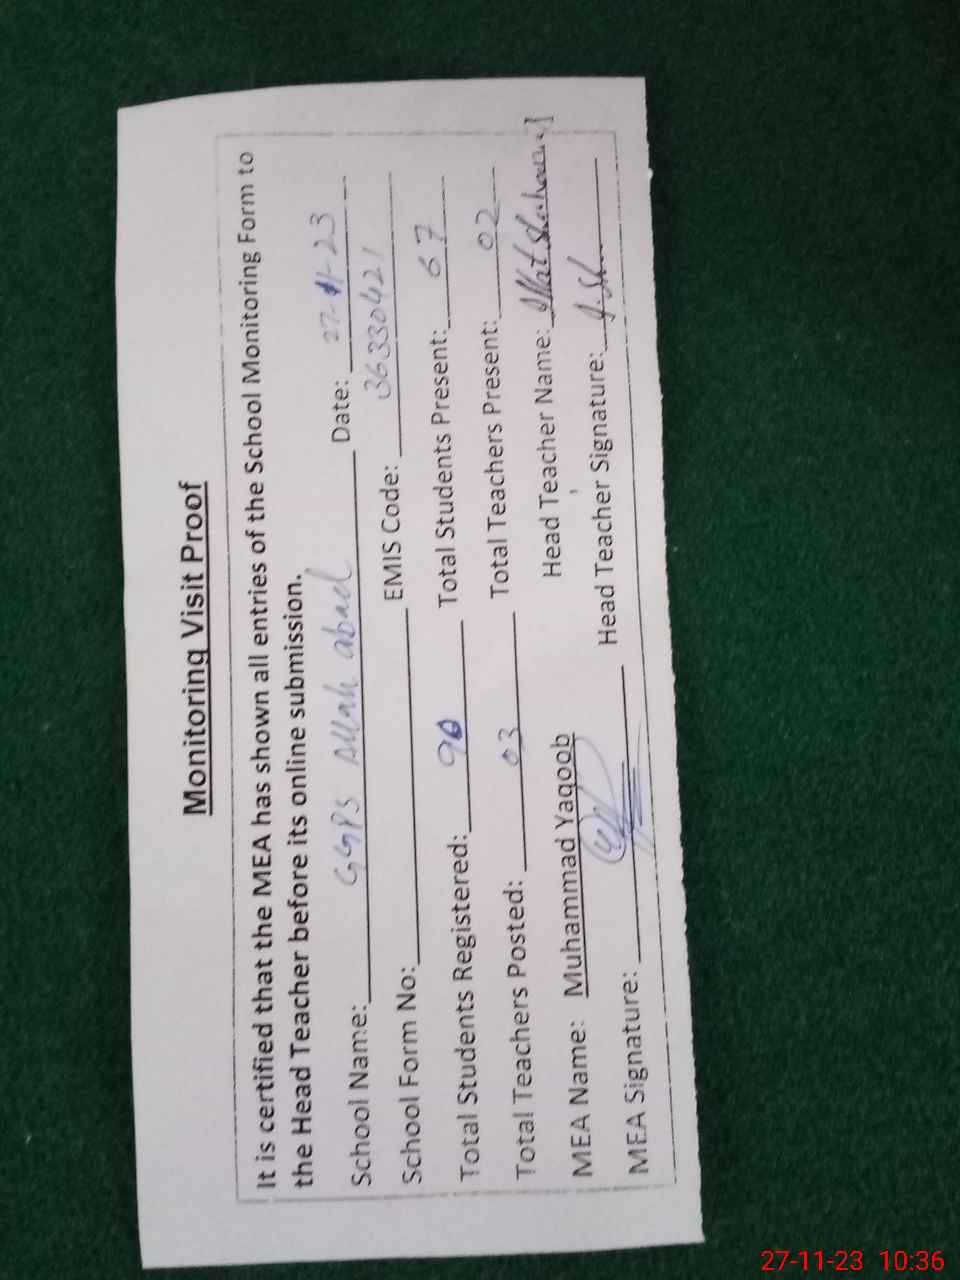 Monitoring Visit Proof
It is certified that the MEA has shown all entries of the School Monitoring Form to
the Head Teacher before its online submission.
School Name: GGPS Allah abad Date: 27-11-23
School Form No: EMIS Code: 36330421
Total Students Registered: 90 Total Students Present: 67
Total Teachers Posted: 03 Total Teachers Present: 02
MEA Name: Muhammad Yaqoob Head Teacher Name:
MEA Signature: Head Teacher Signature:
27-11-23 10:36